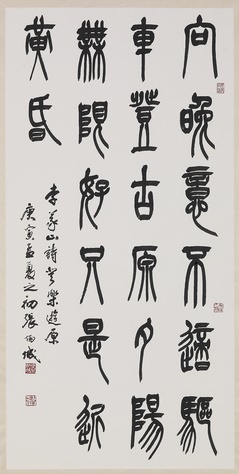 向晚意不適驅
車登古原夕陽
無限好只是近
黃昏
李義山詩登樂遊原
庚寅孟夏之初張